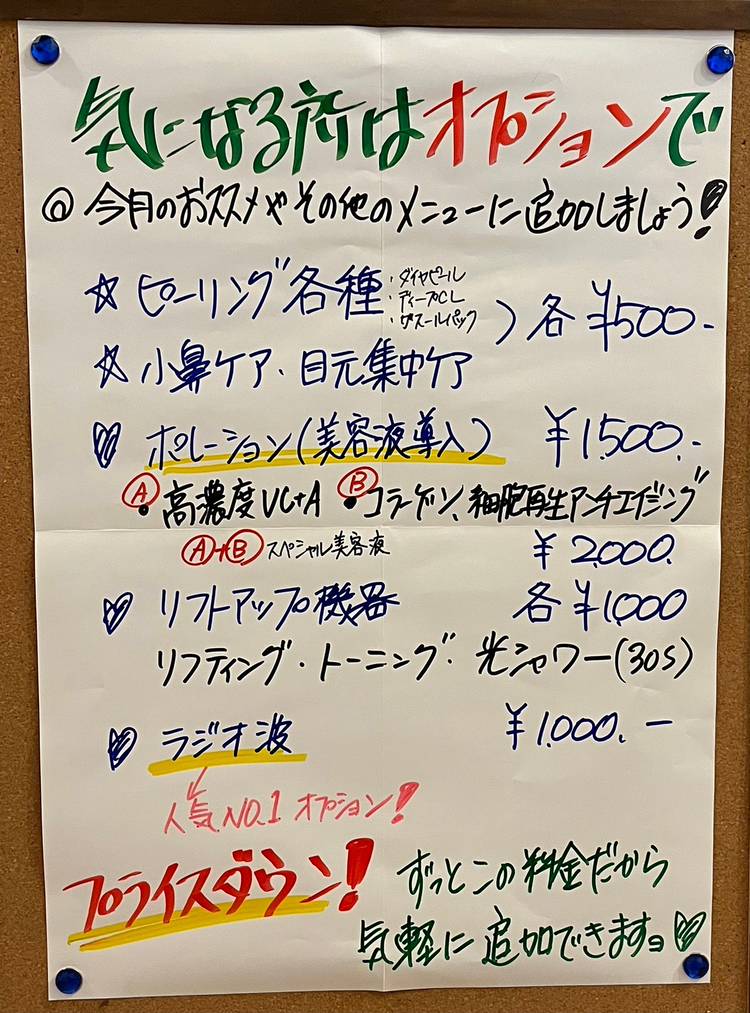 気になる所はオプションで
◎ 今月のおススメやその他のメニューに追加しましょう!
☆ ピーリング各種 ・ダイヤピール ・ディープCL ・ガスールパック ) 各 ¥500.-
☆ 小鼻ケア・目元集中ケア
♡ ポレーション(美容液導入) ¥1,500.-
Ⓐ・高濃度VC+A Ⓑ・コラーゲン、細胞再生アンチエイジング
Ⓐ+Ⓑ スペシャル美容液 ¥2,000.
♡ リフトアップ機器 各¥1,000
リフティング・トーニング・光シャワー(30S)
♡ ラジオ波 ¥1,000.-
人気NO.1 オプション!
プライスダウン!
ずっとこの料金だから
気軽に追加できますョ♡